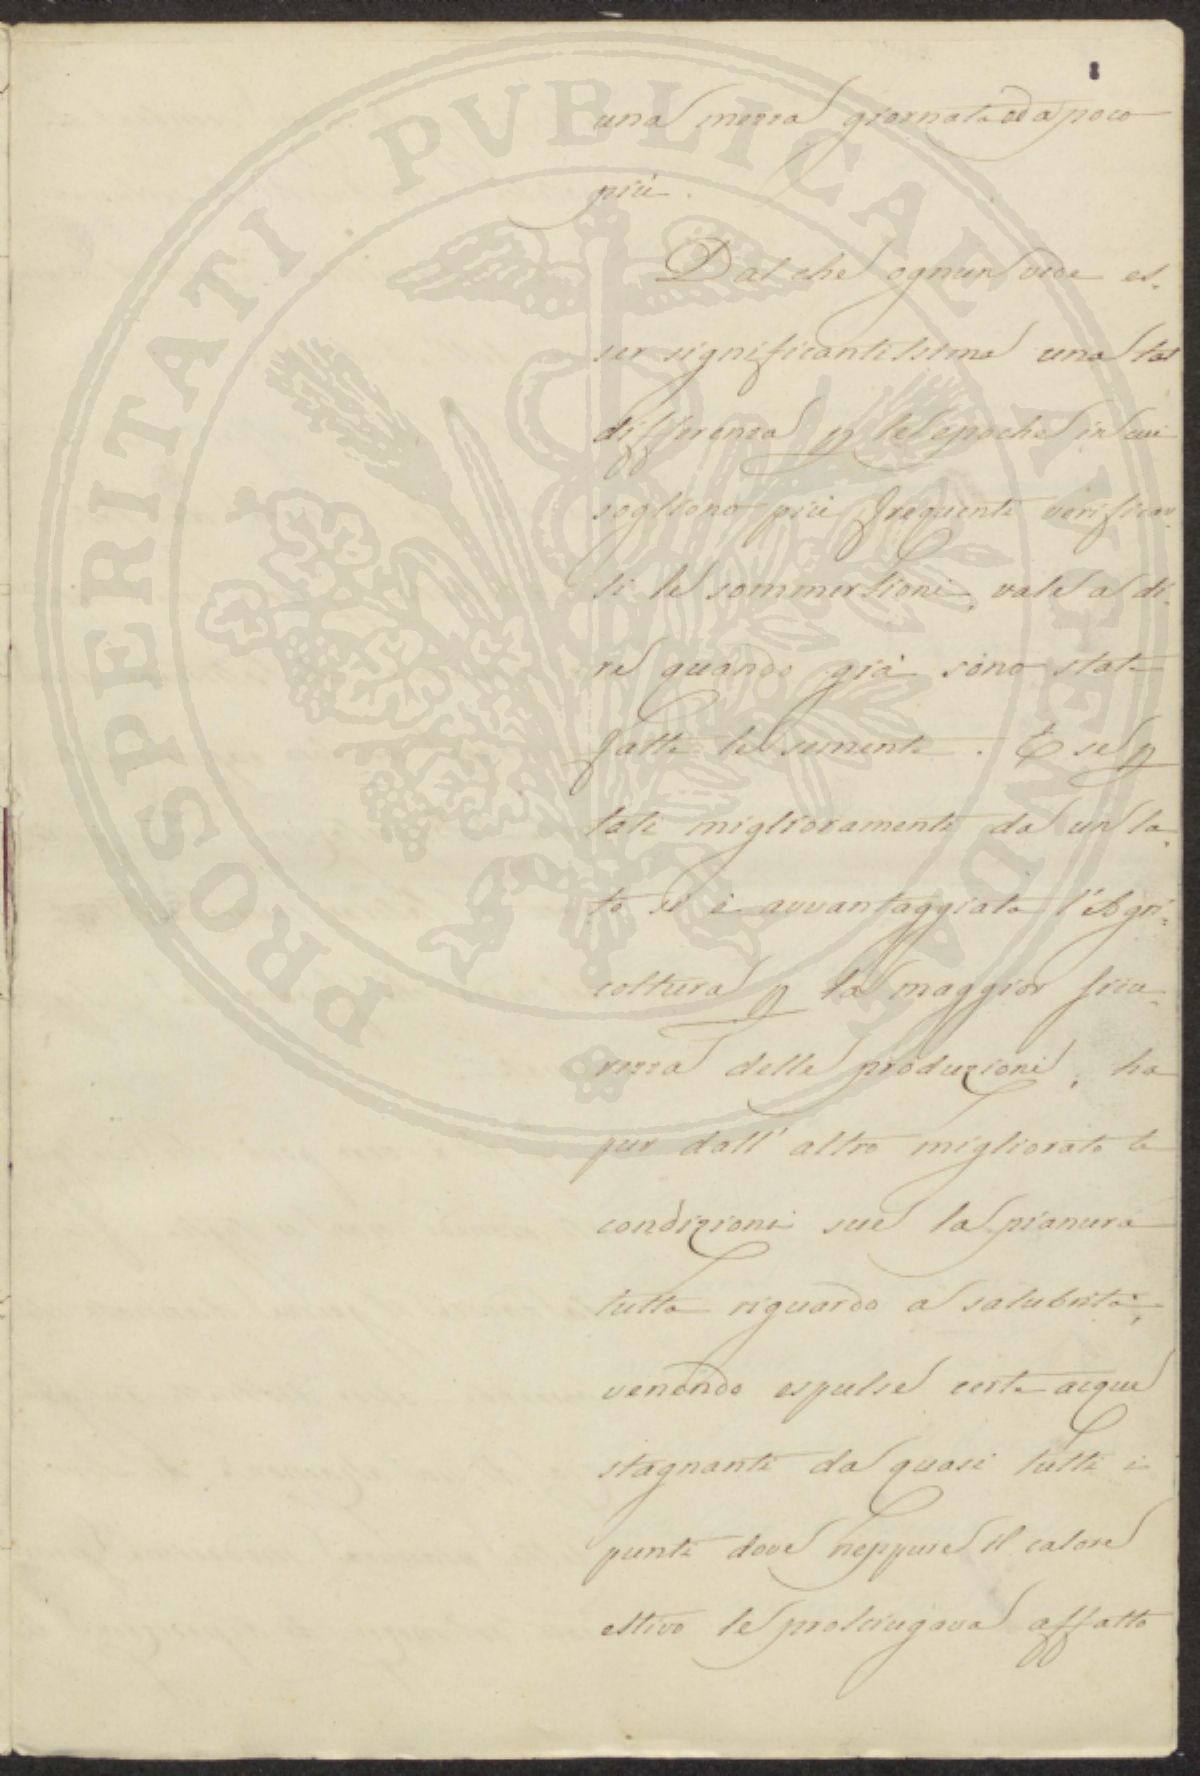 8
una mezza giornata od a poco
più.
Dal che ognun vede es-
ser significantissima una tal
differenza p le epoche in cui
sogliono più frequenti verificar
si le sommersioni, vale a di-
re quando già sono state
fatte le sementi. E se p
tali miglioramenti da un la-
to si è avvantaggiata l'Agri-
coltura p la maggior sicu-
rezza delle produzioni, ha
pur dall'altro migliorato le
condizioni sue la pianura
tutta riguardo a salubrità,
venendo espulse certe acque
stagnanti da quasi tutti i
punti dove neppure il calore
estivo le prosciugava affatto
PROSPERITATI PVBLICAE AVGENDAE